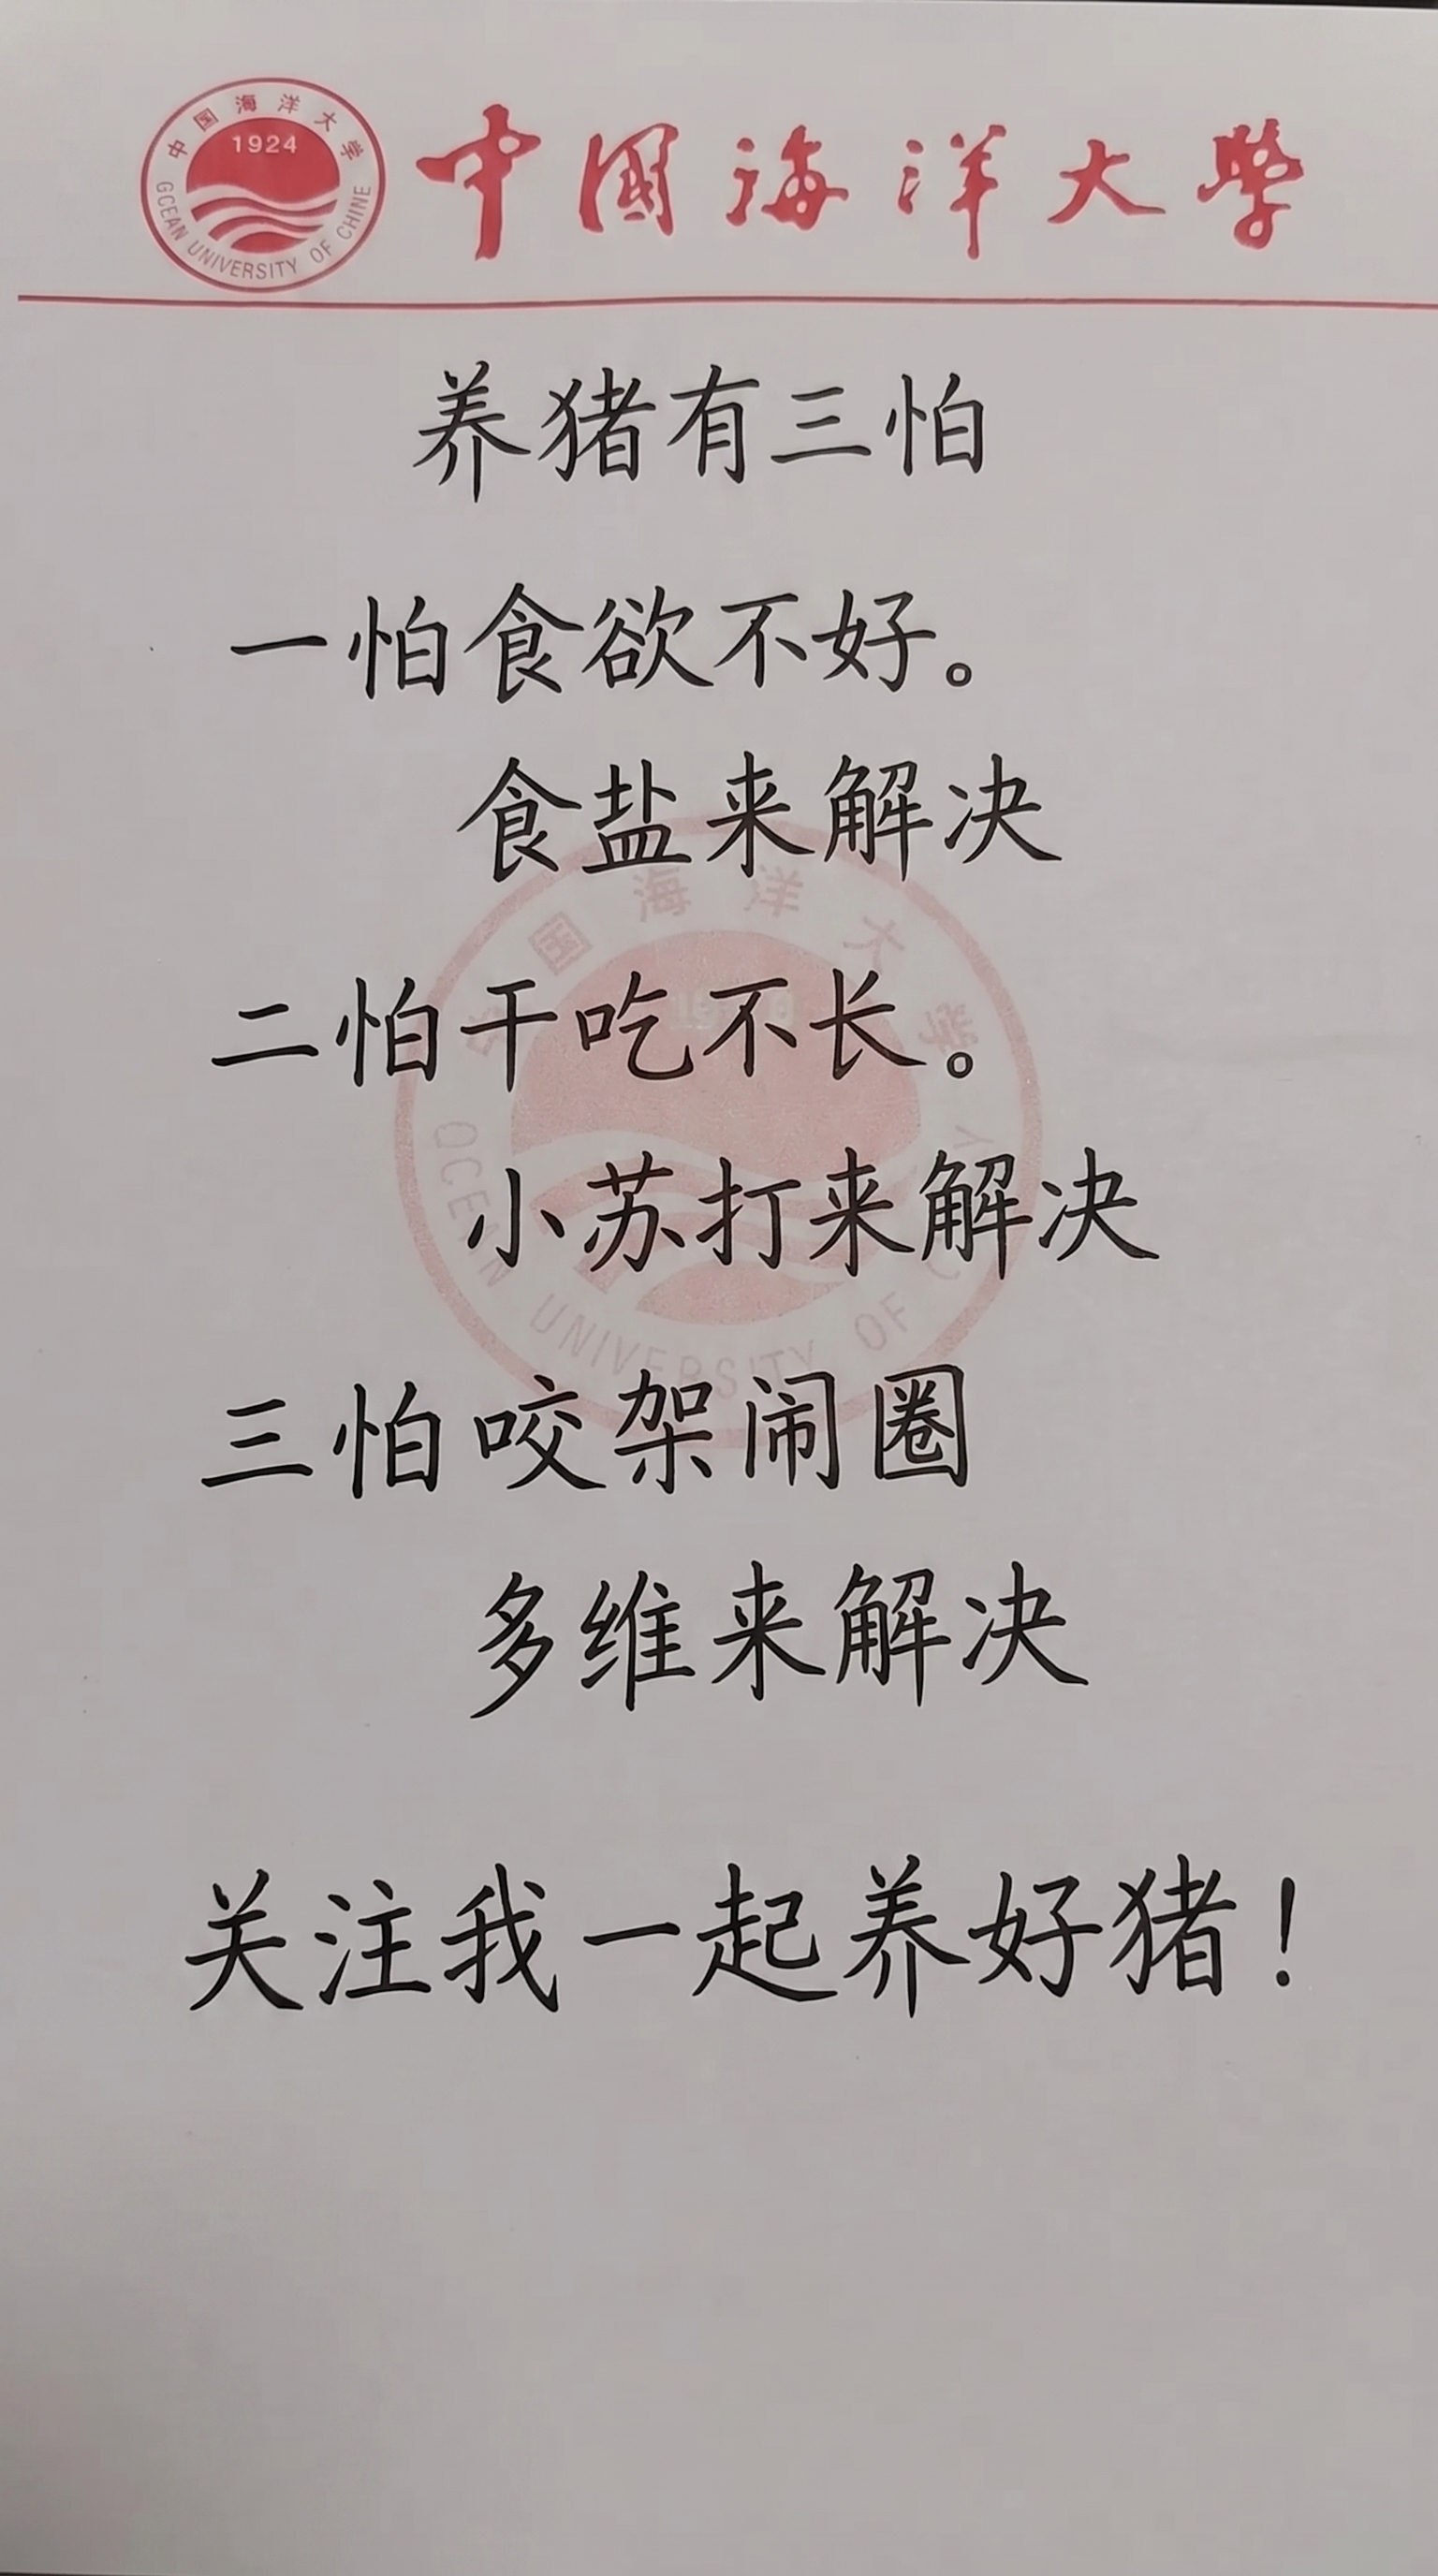 中国海洋大学
1924
GCEAN UNIVERSITY OF CHINE
中國海洋大學
养猪有三怕
一怕食欲不好。
食盐来解决
二怕干吃不长。
小苏打来解决
三怕咬架闹圈
多维来解决
国海洋大学
UNIVERSITY OF
关注我一起养好猪!